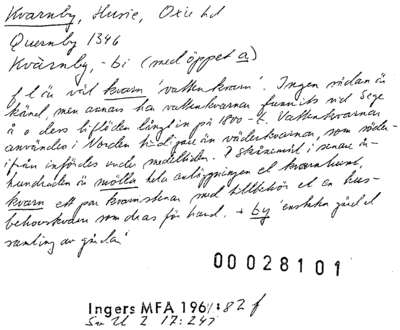 Kvarnby, Husie, Oxie hd
Quernby 1346
Kvärnby, -bi (med öppet a)
f l är väl kvarn 'vattenkvarn'. Ingen sådan är
känd, men annars har vattenkvarnar funnits vid Sege
å o dess biflöden långt in på 1800-t. Vattenkvarnar
användes i Norden tidigare än väderkvarnar, som söder-
ifrån infördes under medeltiden. I skånemål i senare år-
hundraden är mölla hela anläggningen el kvarnhuset,
kvarn ett par kvarnstenar med tillbehör el en hus-
behovskvarn som dras för hand. + by 'enstaka gård el
samling av gårdar'
00028101
Ingers MFA 1961:82 f
Sm U 2 17:247